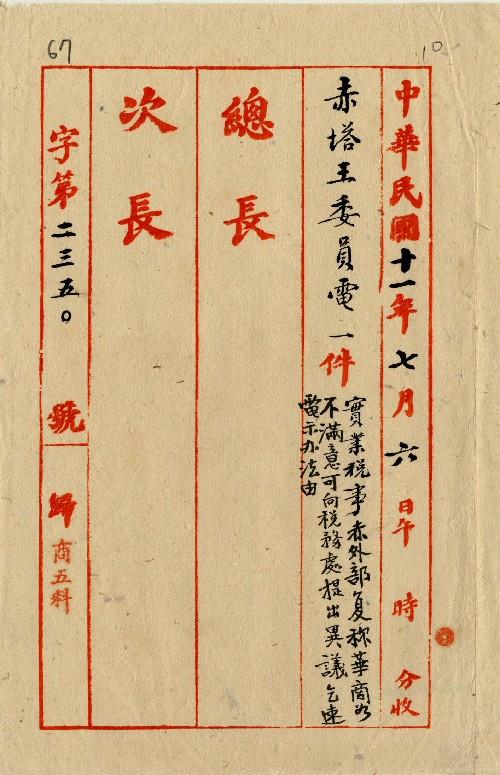 67
10
中華民國十一年七月六日午 時 分收
赤塔王委員電一件
實業稅事赤外部复称華商如
不滿意可向稅務處提出異議乞速
電示办法由
總長
次長
字第二三五〇號
歸商五科